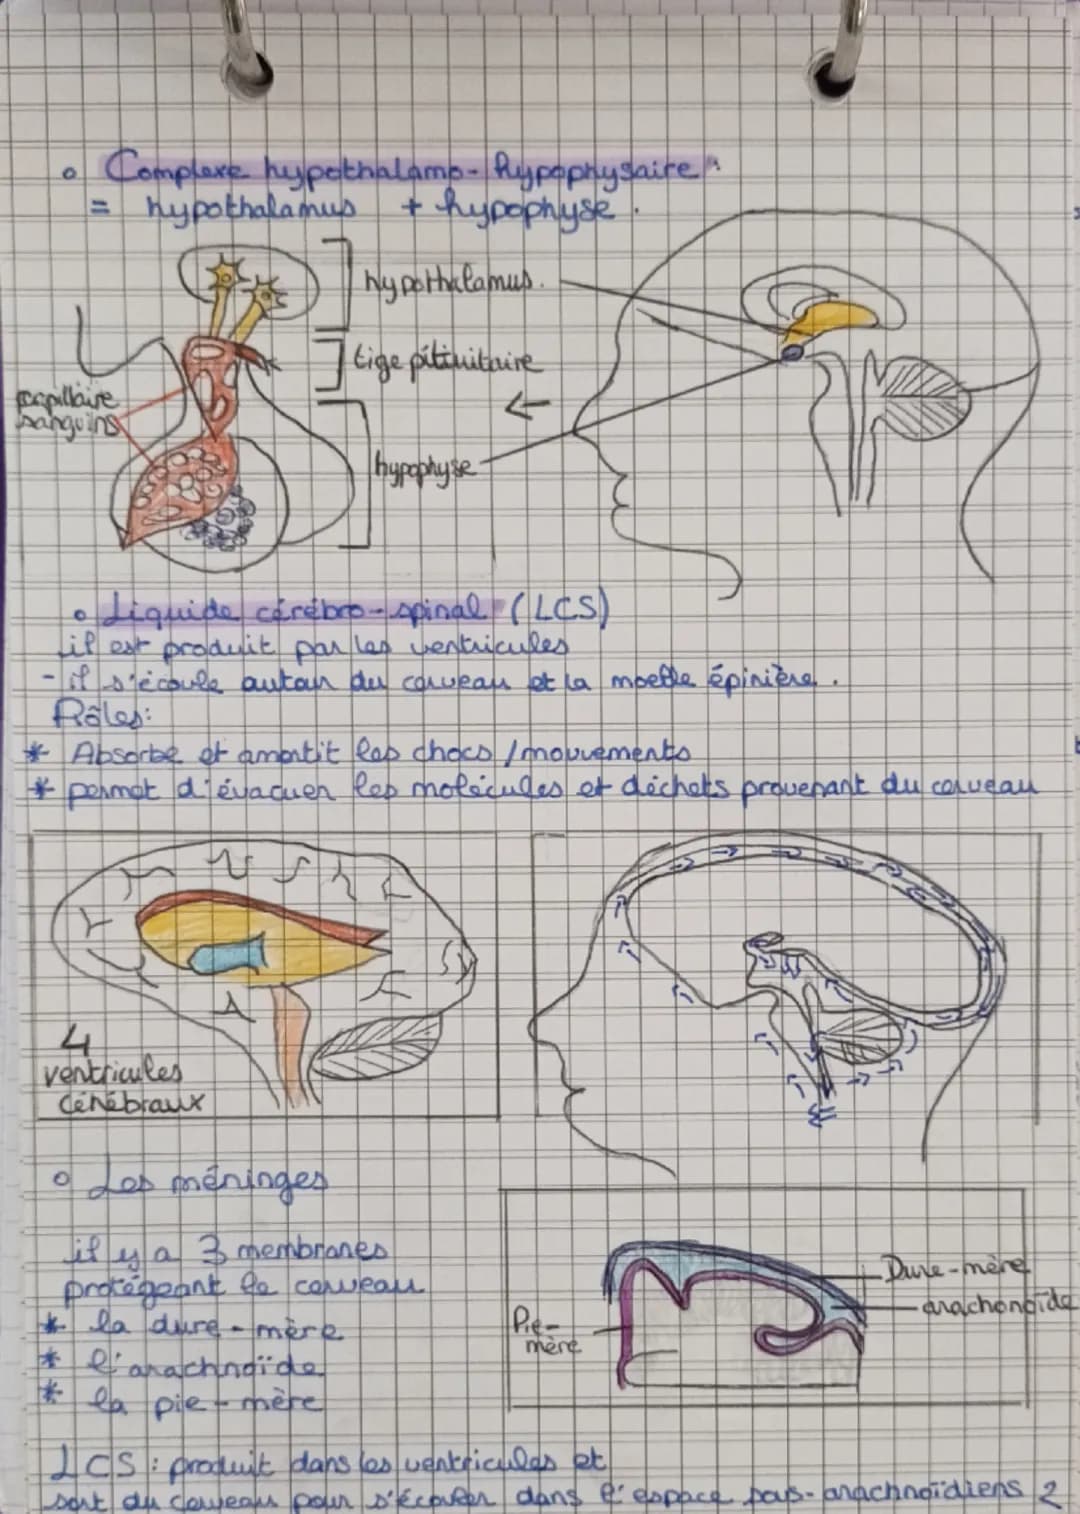 Complexe hypothalamo-hypophysaire :
= hypothalamus + hypophyse.
hypothalamus.
tige pituitaire
capillaire
sanguins
hypophyse
Liquide cérébro-spinal (LCS)
il est produit par les ventricules
- il s'écoule autour du cerveau et la moelle épinière.
Rôles:
* Absorbe et amortit les chocs / mouvements
* permet d'évacuer les molécules et déchets provenant du cerveau
4
ventricules
cérébraux
Les méninges
il y a 3 membranes
protégeant le cerveau
* la dure-mère
* l'arachnoïde
* la pie-mère
Dure-mère
arachonoïde
Pie-
mère
LCS : produit dans les ventricules et
sort du cerveau pour s'écouler dans l'espace sous-arachnoïdiens 2